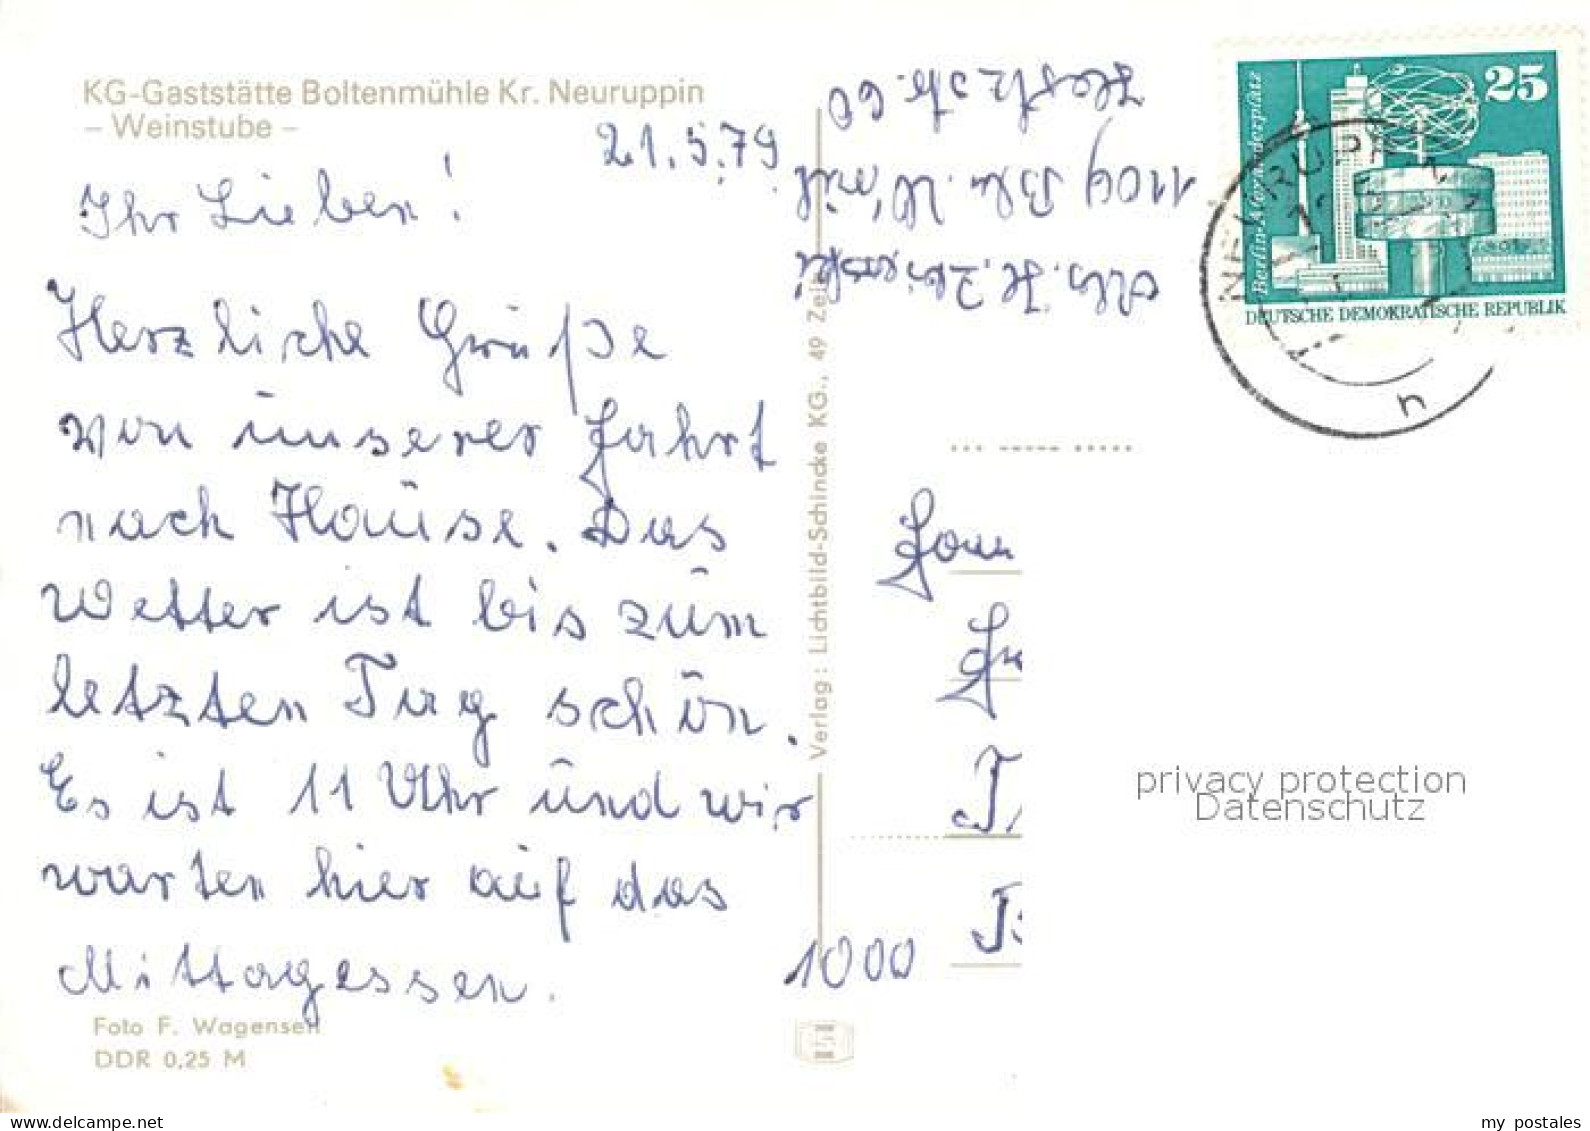 KG-Gaststätte Boltenmühle Kr. Neuruppin
– Weinstube –
21.5.79
Ihr Lieben!
Herzliche Grüße
von unserer Fahrt
nach Hause. Das
Wetter ist bis zum
letzten Tag schön.
Es ist 11 Uhr und wir
warten hier auf das
Mittagessen.
Foto F. Wagensen
DDR 0,25 M
Verlag: Lichtbild-Schincke KG., 49 Zei
Abs. H.
110 Bln.
60
25
Berlin-Alexanderplatz
DEUTSCHE DEMOKRATISCHE REPUBLIK
NEURUPPIN
h
Fam
1000
privacy protection
Datenschutz
www.delcampe.net
my_postales